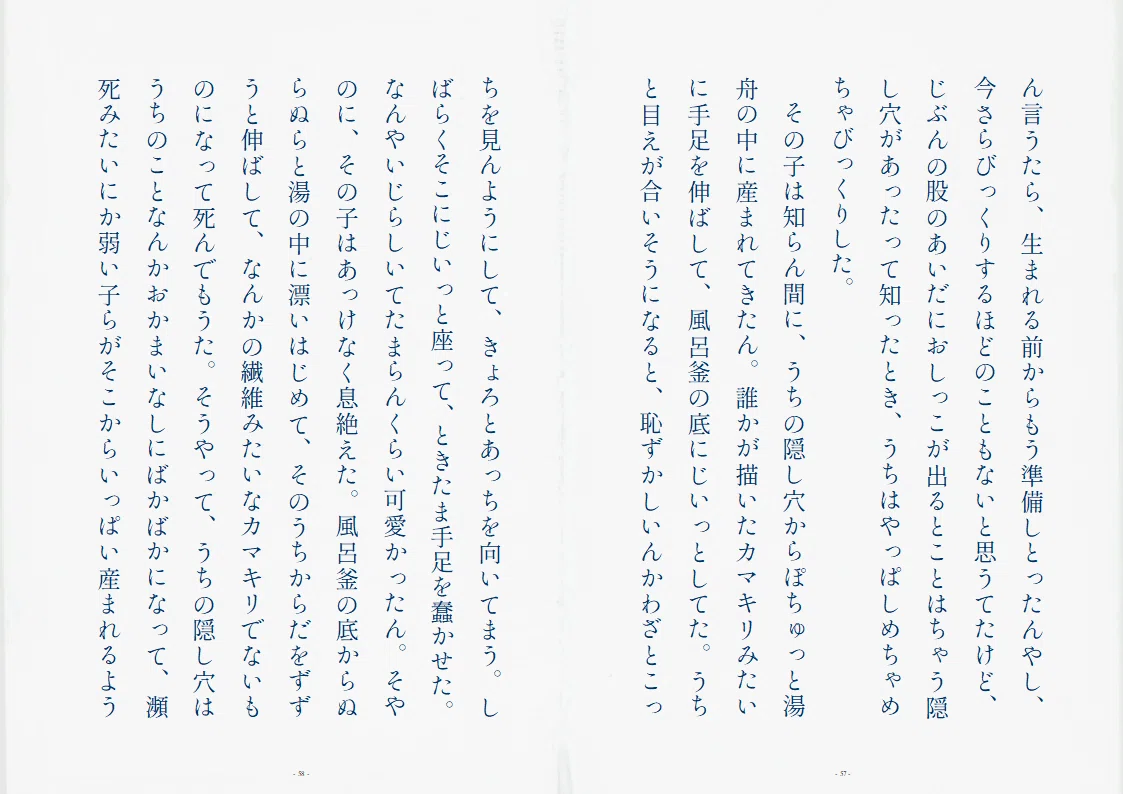 ん言うたら、生まれる前からもう準備しとったんやし、
今さらびっくりするほどのこともないと思うてたけど、
じぶんの股のあいだにおしっこが出るとことはちゃう隠
し穴があったって知ったとき、うちはやっぱしめちゃめ
ちゃびっくりした。
その子は知らん間に、うちの隠し穴からぽちゅっと湯
舟の中に産まれてきたん。誰かが描いたカマキリみたい
に手足を伸ばして、風呂釜の底にじいっとしてた。うち
と目えが合いそうになると、恥ずかしいんかわざとこっ
- 57 -
ちを見んようにして、きょろとあっちを向いてまう。し
ばらくそこにじいっと座って、ときたま手足を蠢かせた。
なんやいじらしいてたまらんくらい可愛かったん。そや
のに、その子はあっけなく息絶えた。風呂釜の底からぬ
らぬらと湯の中に漂いはじめて、そのうちからだをずず
うと伸ばして、なんかの繊維みたいなカマキリでないも
のになって死んでもうた。そうやって、うちの隠し穴は
うちのことなんかおかまいなしにばかばかになって、瀕
死みたいにか弱い子らがそこからいっぱい産まれるよう
- 58 -